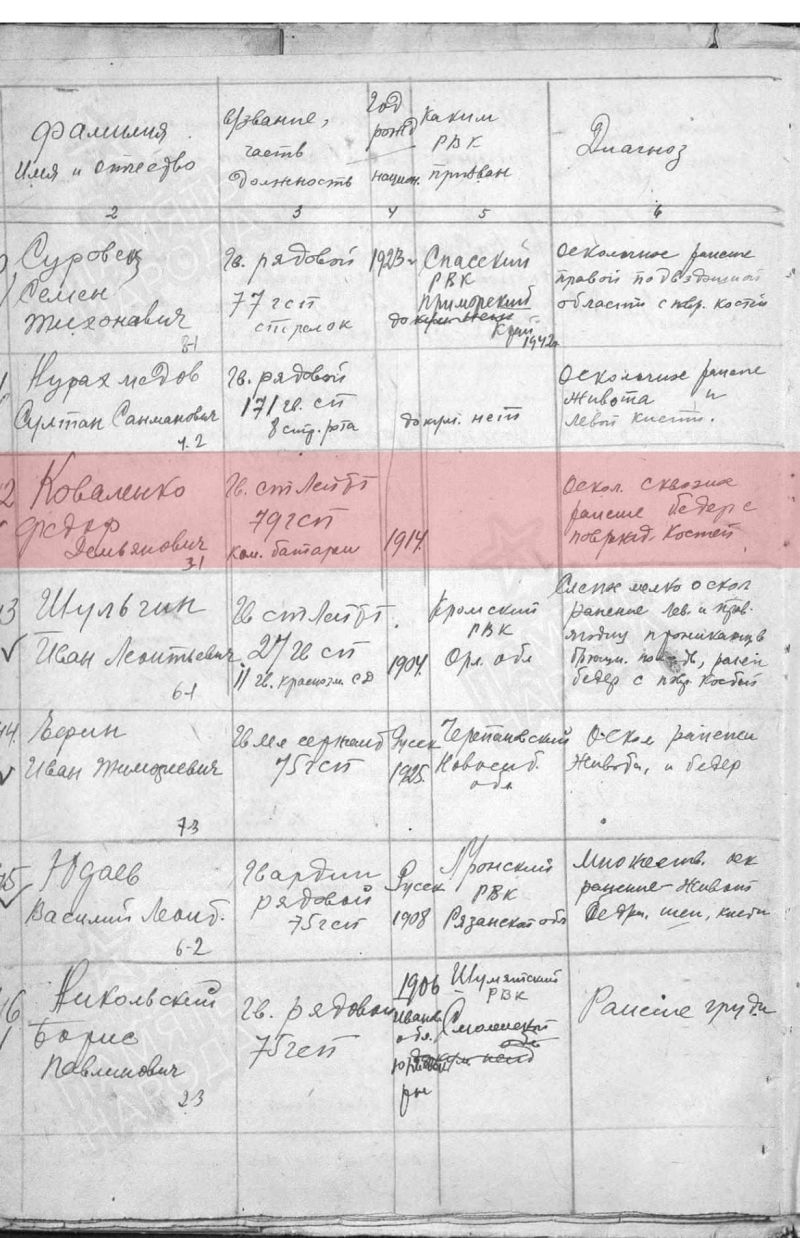 Фамилия
Имя и отчество
Звание,
часть
должность
Год
рожд
национ.
Каким
РВК
призван
Диагноз
2 3 4 5 6
Суровец
Семен
Тихонович
8-1
Гв. рядовой
77 гсп
стрелок
1923
Спасский
РВК
Приморский
край
1942
Осколочное ранение
правой подвздошной
области с повр. костей
Нурахмедов
Султан Санманович
4.2
Гв. рядовой
171 гв. сп
8 стр. рота
докум. нет
Осколочное ранение
живота и
левой кисти.
2 Коваленко
Федор
Демьянович
3-1
Гв. ст Лейт
79 гсп
ком. батареи
1914
Оскол. сквозное
ранение бедер с
поврежд. костей
13 Шульгин
Иван Леонтьевич
6-1
Гв ст Лейт.
27 гв сп
11 гв. краснозн. сд
1904
Кромский
РВК
Орл. обл
ранение лев. и прав.
ягодиц
бедер с повр костей
14. Ерин
Иван Тимофеевич
7-3
Гв мл сержант
75 гсп
Русск
1925
Черепановский
Новосиб.
обл
Оскол ранения
живота, и бедер
15 Юдаев
Василий Леонт.
6-2
Гвардии
рядовой
75 гсп
Русск
1908
Пронский
РВК
Рязанской обл
Множеств. оск
ранение живот
бедра, шеи, кисти
16 Никольский
Борис
Павлинович
2-3
Гв. рядовой
75 гсп
1906
Иванов
обл.
рн
Шумятский
РВК
Смоленской
обл
Ранение груди